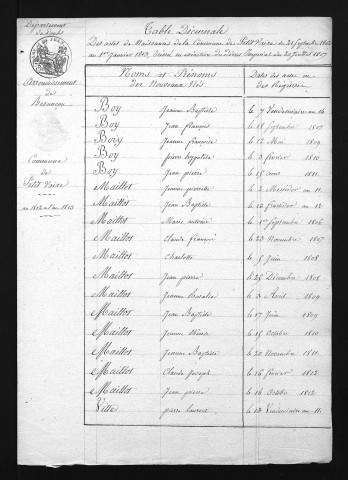 Département
du Doubs
Arrondissement
de
Besançon
Commune
de
Petit Vaire
an 1802 al an 1813
Table Décennale
Des actes de Naissances de la Commune de Petit Vaire du 21 Septembre 1802
au 1er janvier 1813, dressé en exécution du décret Impérial du 20 juillet 1807
Noms et Prénoms des Nouveaux Nés
Dates des actes ou des Registres
Boy Jeanne Baptiste le 7 Vendemiaire an 14
Boy Jean françois le 18 Septembre 1807
Boy Jeanne françoise le 12 Mai 1809
Boy pierre hyppolite le 2 février 1810
Boy Jean pierre le 15 aout 1811
Maillot Jeanne pierrette le 2 Messidor an 11
Maillot Jean Baptiste le 12 frimaire an 12
Maillot Marie antoine le 1er Septembre 1806
Maillot Claude françois le 23 Novembre 1807
Maillot Charlotte le 5 Juin 1808
Maillot Jean pierre le 25 Décembre 1808
Maillot Jeanne le 3 Avril 1809
Maillot Jean Baptiste le 17 Juin 1809
Maillot Jeanne le 15 Octobre 1810
Maillot Jeanne Baptiste le 20 Novembre 1811
Maillot Claude Joseph le 16 février 1812
Maillot Jean pierre le 16 Octobre 1812
Vitte pierre laurent le 13 Vendemiaire an 11